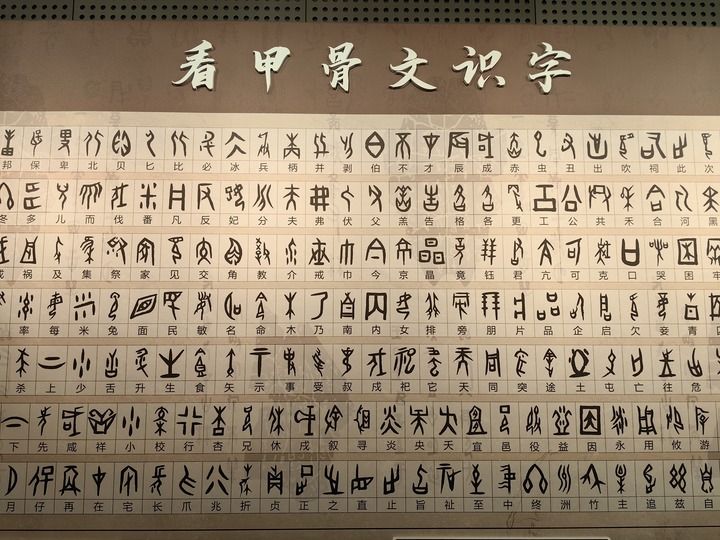 看甲骨文识字
邦 保 卑 北 贝 匕 比 必 冰 兵 柄 并 剥 伯 不 才 辰 成 赤 虫 丑 出 吹 祠 此 次
冬 多 儿 而 伐 番 凡 反 妃 分 夫 弗 伏 父 羔 告 格 各 更 工 公 共 禾 合 河 黑
祸 及 集 祭 家 见 交 角 教 介 戒 巾 今 京 晶 竟 钰 君 亢 可 克 口 哭 困 牢
率 每 米 兔 面 民 敏 名 命 木 乃 南 内 女 排 旁 朋 片 品 企 启 欠 妾 青
杀 上 少 舌 升 生 食 矢 示 事 受 叔 戍 祀 它 天 同 突 途 土 屯 亡 往 危
下 先 咸 祥 小 校 行 杏 兄 休 戌 叙 寻 炎 央 夭 宜 邑 役 益 因 永 用 攸 游
月 仔 再 在 宅 长 爪 兆 折 贞 正 之 直 止 旨 祉 至 中 终 洲 竹 主 追 兹 自